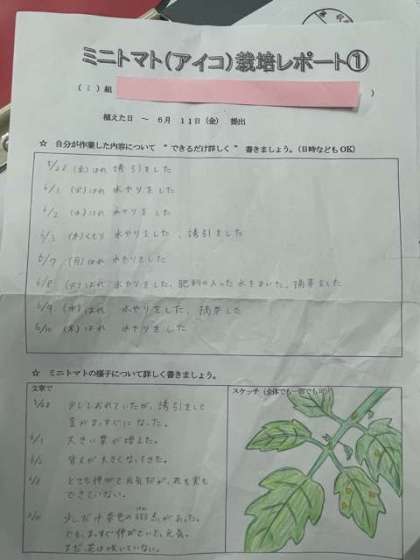 ミニトマト(アイコ)栽培レポート①
(ミ)組 )
植えた日 ～ 6月 11日(金) 提出
☆ 自分が作業した内容について "できるだけ詳しく" 書きましょう。(日時などもOK)
5/28 (金) はれ 誘引をした
6/1 (火) はれ 水やりをした
6/2 (水) はれ 水やりをした
6/3 (木) くもり 水やりをした、誘引をした
6/7 (月) はれ 水やりをした
6/8 (火) はれ 水やりをした、肥料の入った水をまいた、摘芽をした
6/9 (水) はれ 水やりをした、摘芽した
6/10 (木) はれ 水やりをした
☆ ミニトマトの様子について詳しく書きましょう。
文章で
5/28 少ししおれていたが、誘引をして
茎がまっすぐになった。
6/1 大きい葉が増えた。
6/3 背丈が大きくなってきた。
6/8 とても伸びて元気だが、花も実も
できていない。
6/10 少しだけ茶色の斑点があった。
でも、まっすぐ伸びていて、元気。
まだ花は咲いていない。
スケッチ(全体でも一部でもOK)